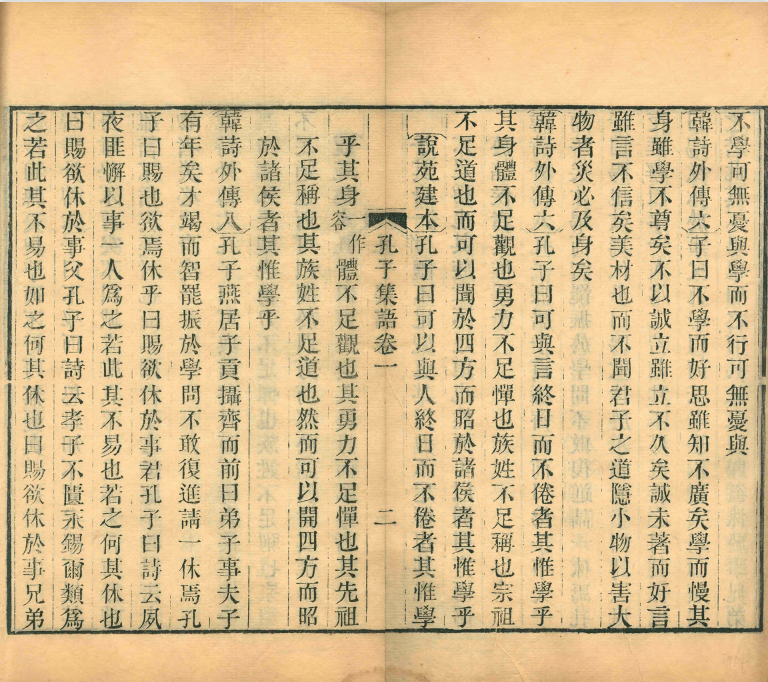 不學可無憂與學而不行可無憂與
韓詩外傳六子曰不學而好思雖知不廣矣學而慢其
身雖學不尊矣不以誠立雖立不久矣誠未著而好言
雖言不信矣美材也而不聞君子之道隱小物以害大
物者災必及身矣
韓詩外傳六孔子曰可與言終日而不倦者其惟學乎
其身體不足觀也勇力不足憚也族姓不足稱也宗祖
不足道也而可以聞於四方而昭於諸侯者其惟學乎
說苑建本孔子曰可以與人終日而不倦者其惟學
孔子集語卷一 二
乎其身一作容體不足觀也其勇力不足憚也其先祖
不足稱也其族姓不足道也然而可以開四方而昭
於諸侯者其惟學乎
韓詩外傳八孔子燕居子貢攝齊而前曰弟子事夫子
有年矣才竭而智罷振於學問不敢復進請一休焉孔
子曰賜也欲焉休乎曰賜欲休於事君孔子曰詩云夙
夜匪懈以事一人為之若此其不易也若之何其休也
曰賜欲休於事父孔子曰詩云孝子不匱永錫爾類為
之若此其不易也如之何其休也曰賜欲休於事兄弟